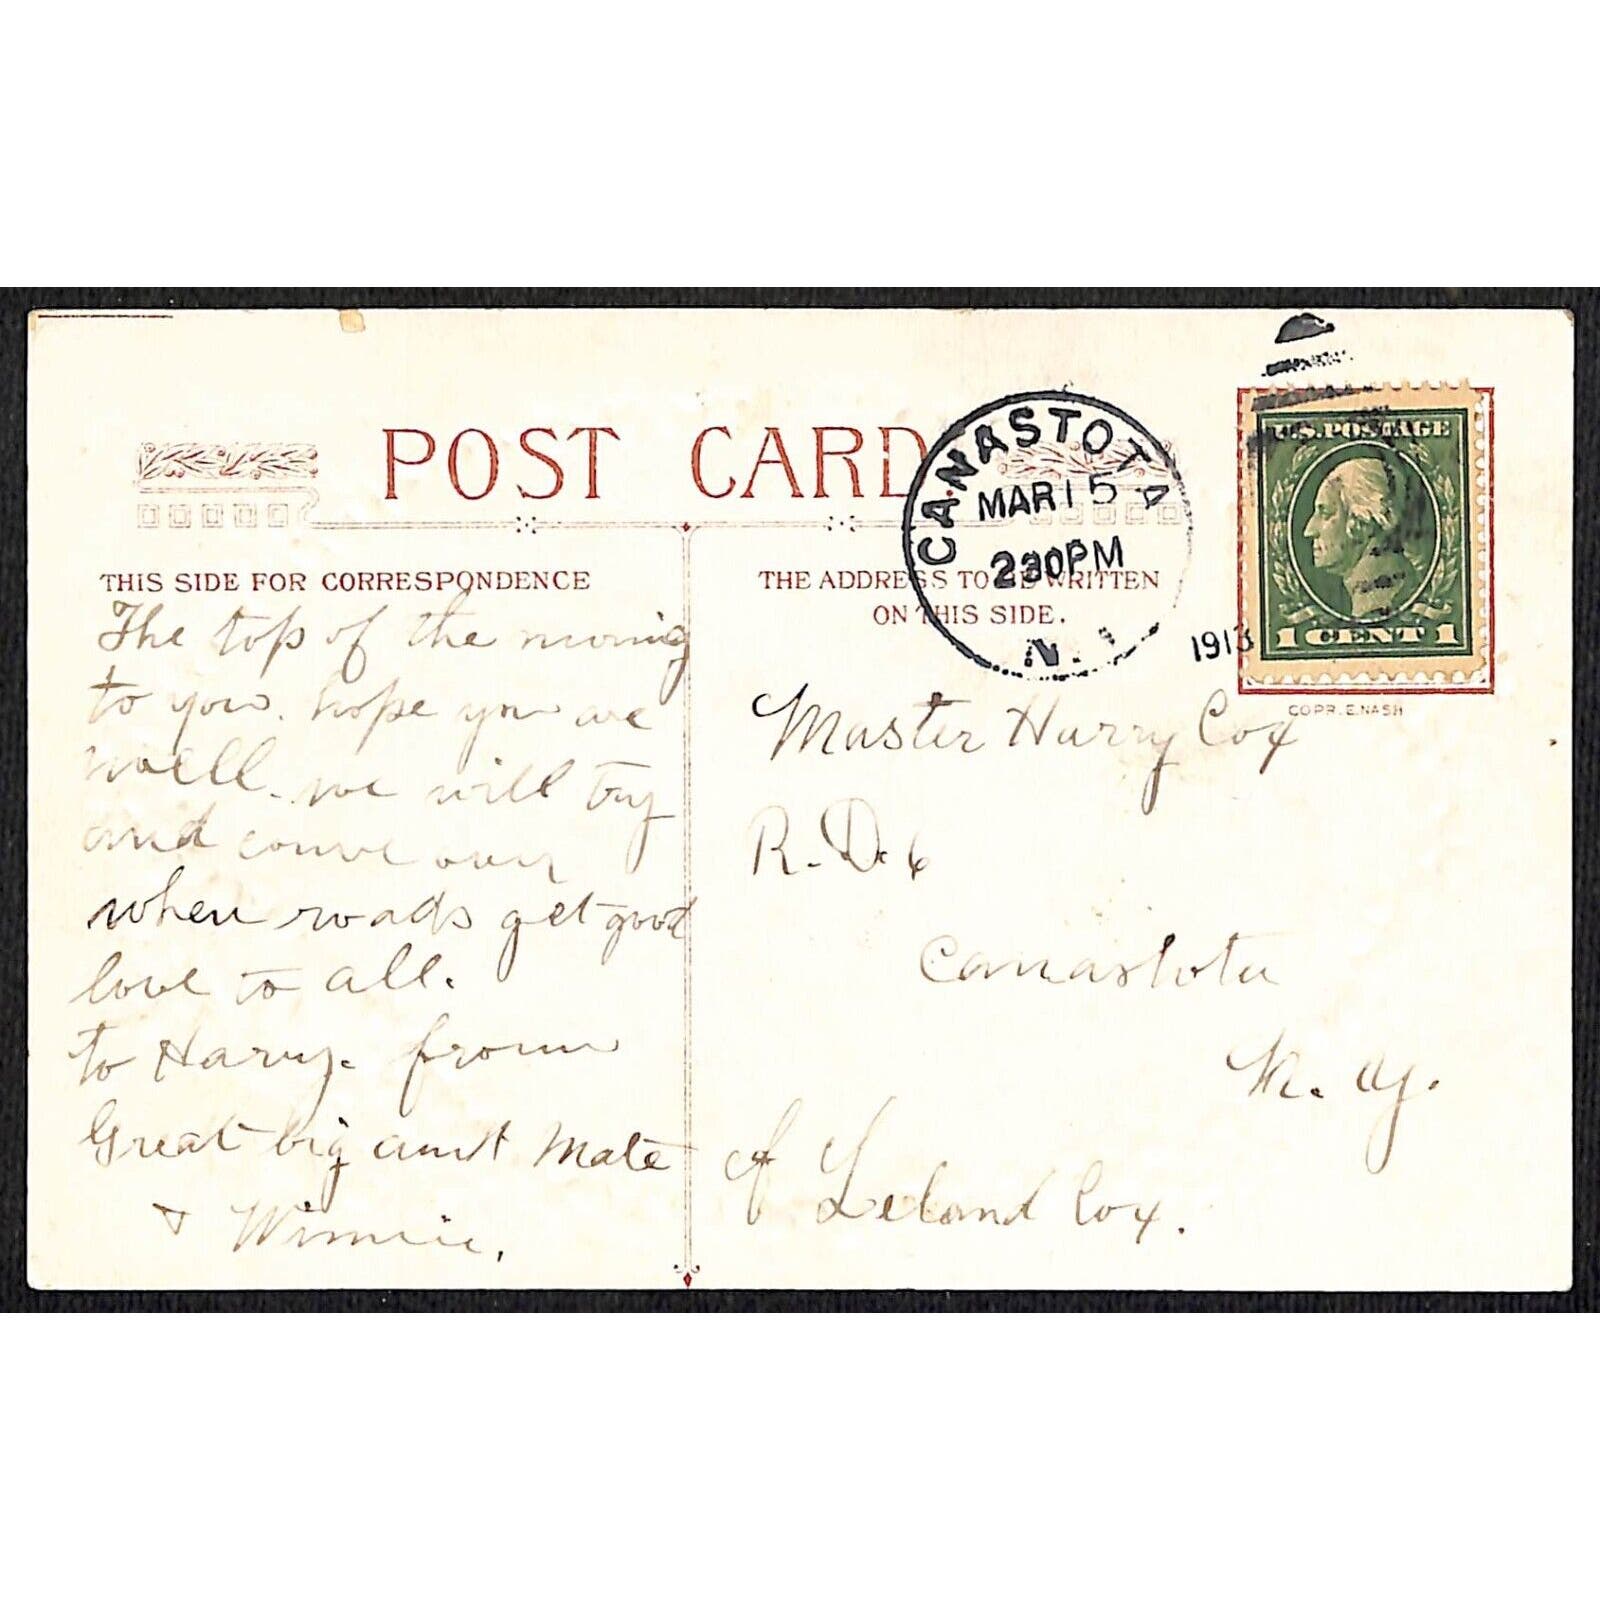 POST CARD
CANASTOTA
MAR 15
230PM
N.
1913
U.S. POSTAGE
1 CENT 1
COPR. E. NASH
THIS SIDE FOR CORRESPONDENCE
The top of the morning
to you. hope you are
well. we will try
and come over
when roads get good
love to all.
to Harry. from
Great big aunt Mate
& Winnie.
THE ADDRESS TO BE WRITTEN
ON THIS SIDE.
Master Harry Cox
R.D. 6
Canastota
N.Y.
of Leland Cox.